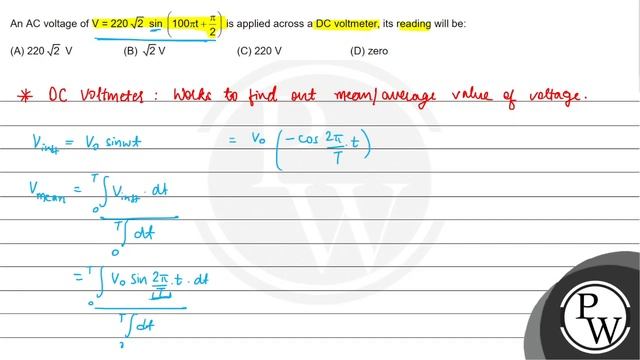 An AC voltage of V = 220 √2 sin (100πt + π/2) is applied across a DC voltmeter, its reading will be:
(A) 220 √2 V (B) √2 V (C) 220 V (D) zero
* DC Voltmeter : Works to find out mean/average value of voltage.
V_inst = V₀ sinωt = V₀ (−cos 2π/T . t)
V_mean = ∫₀ᵀ V_inst . dt / ∫₀ᵀ dt
= ∫₀ᵀ V₀ sin 2π/T . t . dt / ∫ᵀ dt
P
W
P
W